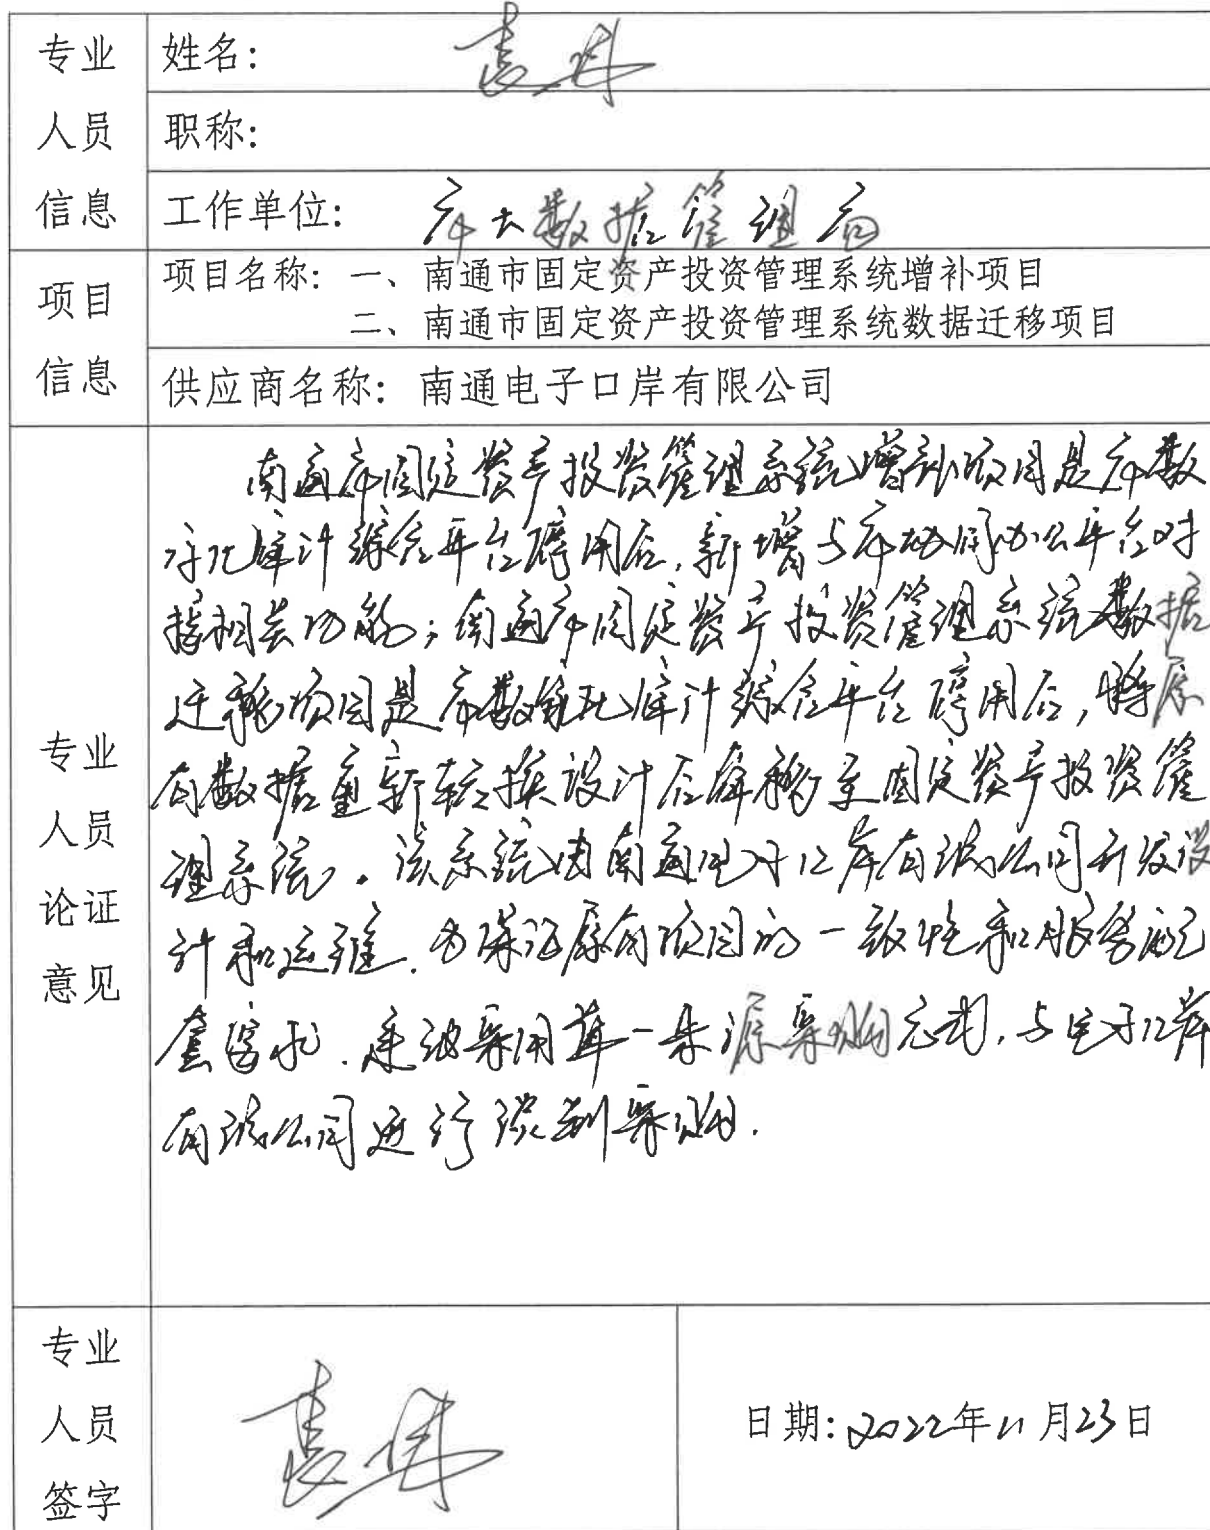 专业人员信息
姓名：
职称：
工作单位：市大数据管理局
项目信息
项目名称：一、南通市固定资产投资管理系统增补项目
二、南通市固定资产投资管理系统数据迁移项目
供应商名称：南通电子口岸有限公司
专业人员论证意见
南通市固定资产投资管理系统增补项目是市数
字化审计综合平台停用后，新增与市协同办公平台对
接相关功能；南通市固定资产投资管理系统数据
迁移项目是市数字化审计综合平台停用后，将原
有数据重新转换设计后迁移至固定资产投资管
理系统。该系统由南通电子口岸有限公司开发设
计和运维。为保证原有项目的一致性和服务配
套需求，建议采用单一来源采购方式，与电子口岸
有限公司进行谈判采购.
专业人员签字
日期：2022年11月23日